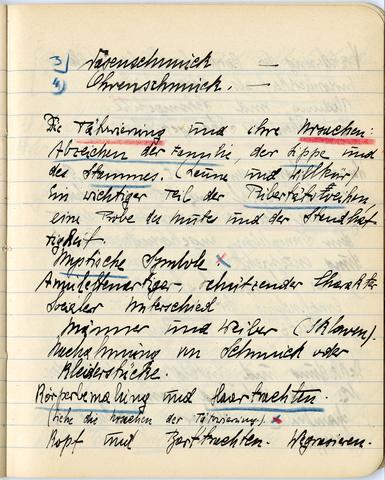 3) Nasenschmuck —
4) Ohrenschmuck. —
Die Tätowierung und ihre Ursachen:
Abzeichen der Familie, der Sippe und
des Stammes. (Laune und Willkür)
Ein wichtiger Teil der Pubertätsweihen,
eine Probe des Mutes und der Standhaf
tigkeit.
Mystische Symbole x
Amulettenartiger schützender Charakter
Sozialer Unterschied
Männer und Weiber (Sklaven).
Nachahmung von Schmuck oder
Kleiderstücke.
Körperbemalung und Haartrachten.
(siehe die Ursachen der Tätowierung.) x
Kopf und Barttrachten.